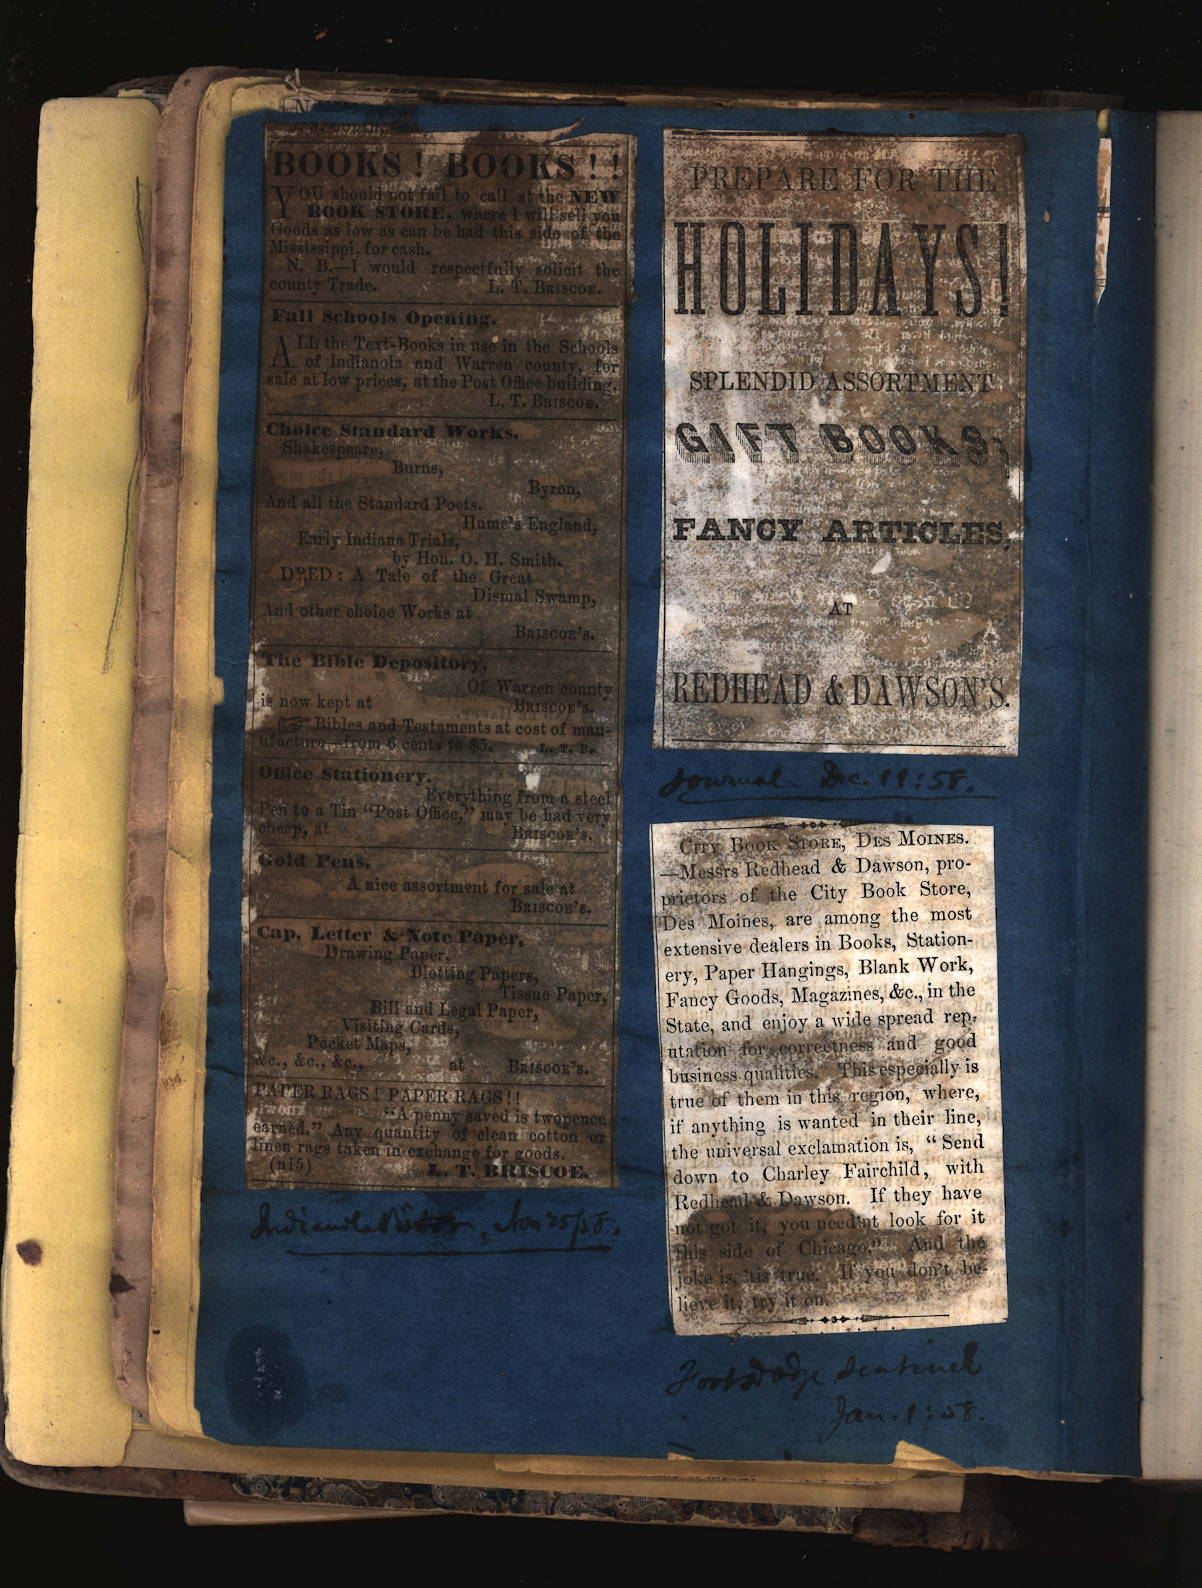 BOOKS! BOOKS!!
YOU should not fail to call at the NEW
BOOK STORE, where I will sell you
Goods as low as can be had this side of the
Mississippi, for cash.
N. B.—I would respectfully solicit the
county Trade. L. T. BRISCOE.
Fall Schools Opening.
ALL the Text-Books in use in the Schools
of Indianola and Warren county, for
sale at low prices, at the Post Office building.
L. T. BRISCOE.
Choice Standard Works.
Shakespeare,
Burns,
Byron,
And all the Standard Poets.
Hume's England,
Early Indiana Trials,
by Hon. O. H. Smith.
DRED: A Tale of the Great
Dismal Swamp,
And other choice Works at
BRISCOE'S.
The Bible Depository,
Of Warren county
is now kept at BRISCOE'S.
☞ Bibles and Testaments at cost of man-
ufacture—from 6 cents to $5. L. T. B.
Office Stationery.
Everything from a steel
Pen to a Tin "Post Office," may be had very
cheap, at BRISCOE'S.
Gold Pens.
A nice assortment for sale at
BRISCOE'S.
Cap, Letter & Note Paper,
Drawing Paper,
Blotting Papers,
Tissue Paper,
Bill and Legal Paper,
Visiting Cards,
Pocket Maps,
&c., &c., &c., at BRISCOE'S.
PAPER RAGS! PAPER RAGS!!
"A penny saved is twopence
earned." Any quantity of clean cotton or
linen rags taken in exchange for goods.
(n15) L. T. BRISCOE.
Indianola Nov 25/58.
PREPARE FOR THE
HOLIDAYS!
SPLENDID ASSORTMENT
GIFT BOOKS,
FANCY ARTICLES,
AT
REDHEAD & DAWSON'S.
Journal. Dec. 11:58.
CITY BOOK STORE, DES MOINES.
—Messrs Redhead & Dawson, pro-
prietors of the City Book Store,
Des Moines, are among the most
extensive dealers in Books, Station-
ery, Paper Hangings, Blank Work,
Fancy Goods, Magazines, &c., in the
State, and enjoy a wide spread rep-
utation for correctness and good
business qualities. This especially is
true of them in this region, where,
if anything is wanted in their line,
the universal exclamation is, "Send
down to Charley Fairchild, with
Redhead & Dawson. If they have
not got it, you need'nt look for it
this side of Chicago." And the
joke is, 'tis true. If you don't be-
lieve it, try it on.
Fort Dodge Sentinel
Jan. 1:58.